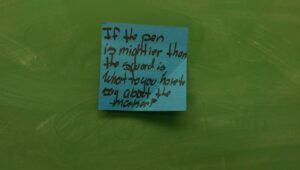 If the pen
is mightier than
the sword is
what do you have to
say about the
marker?